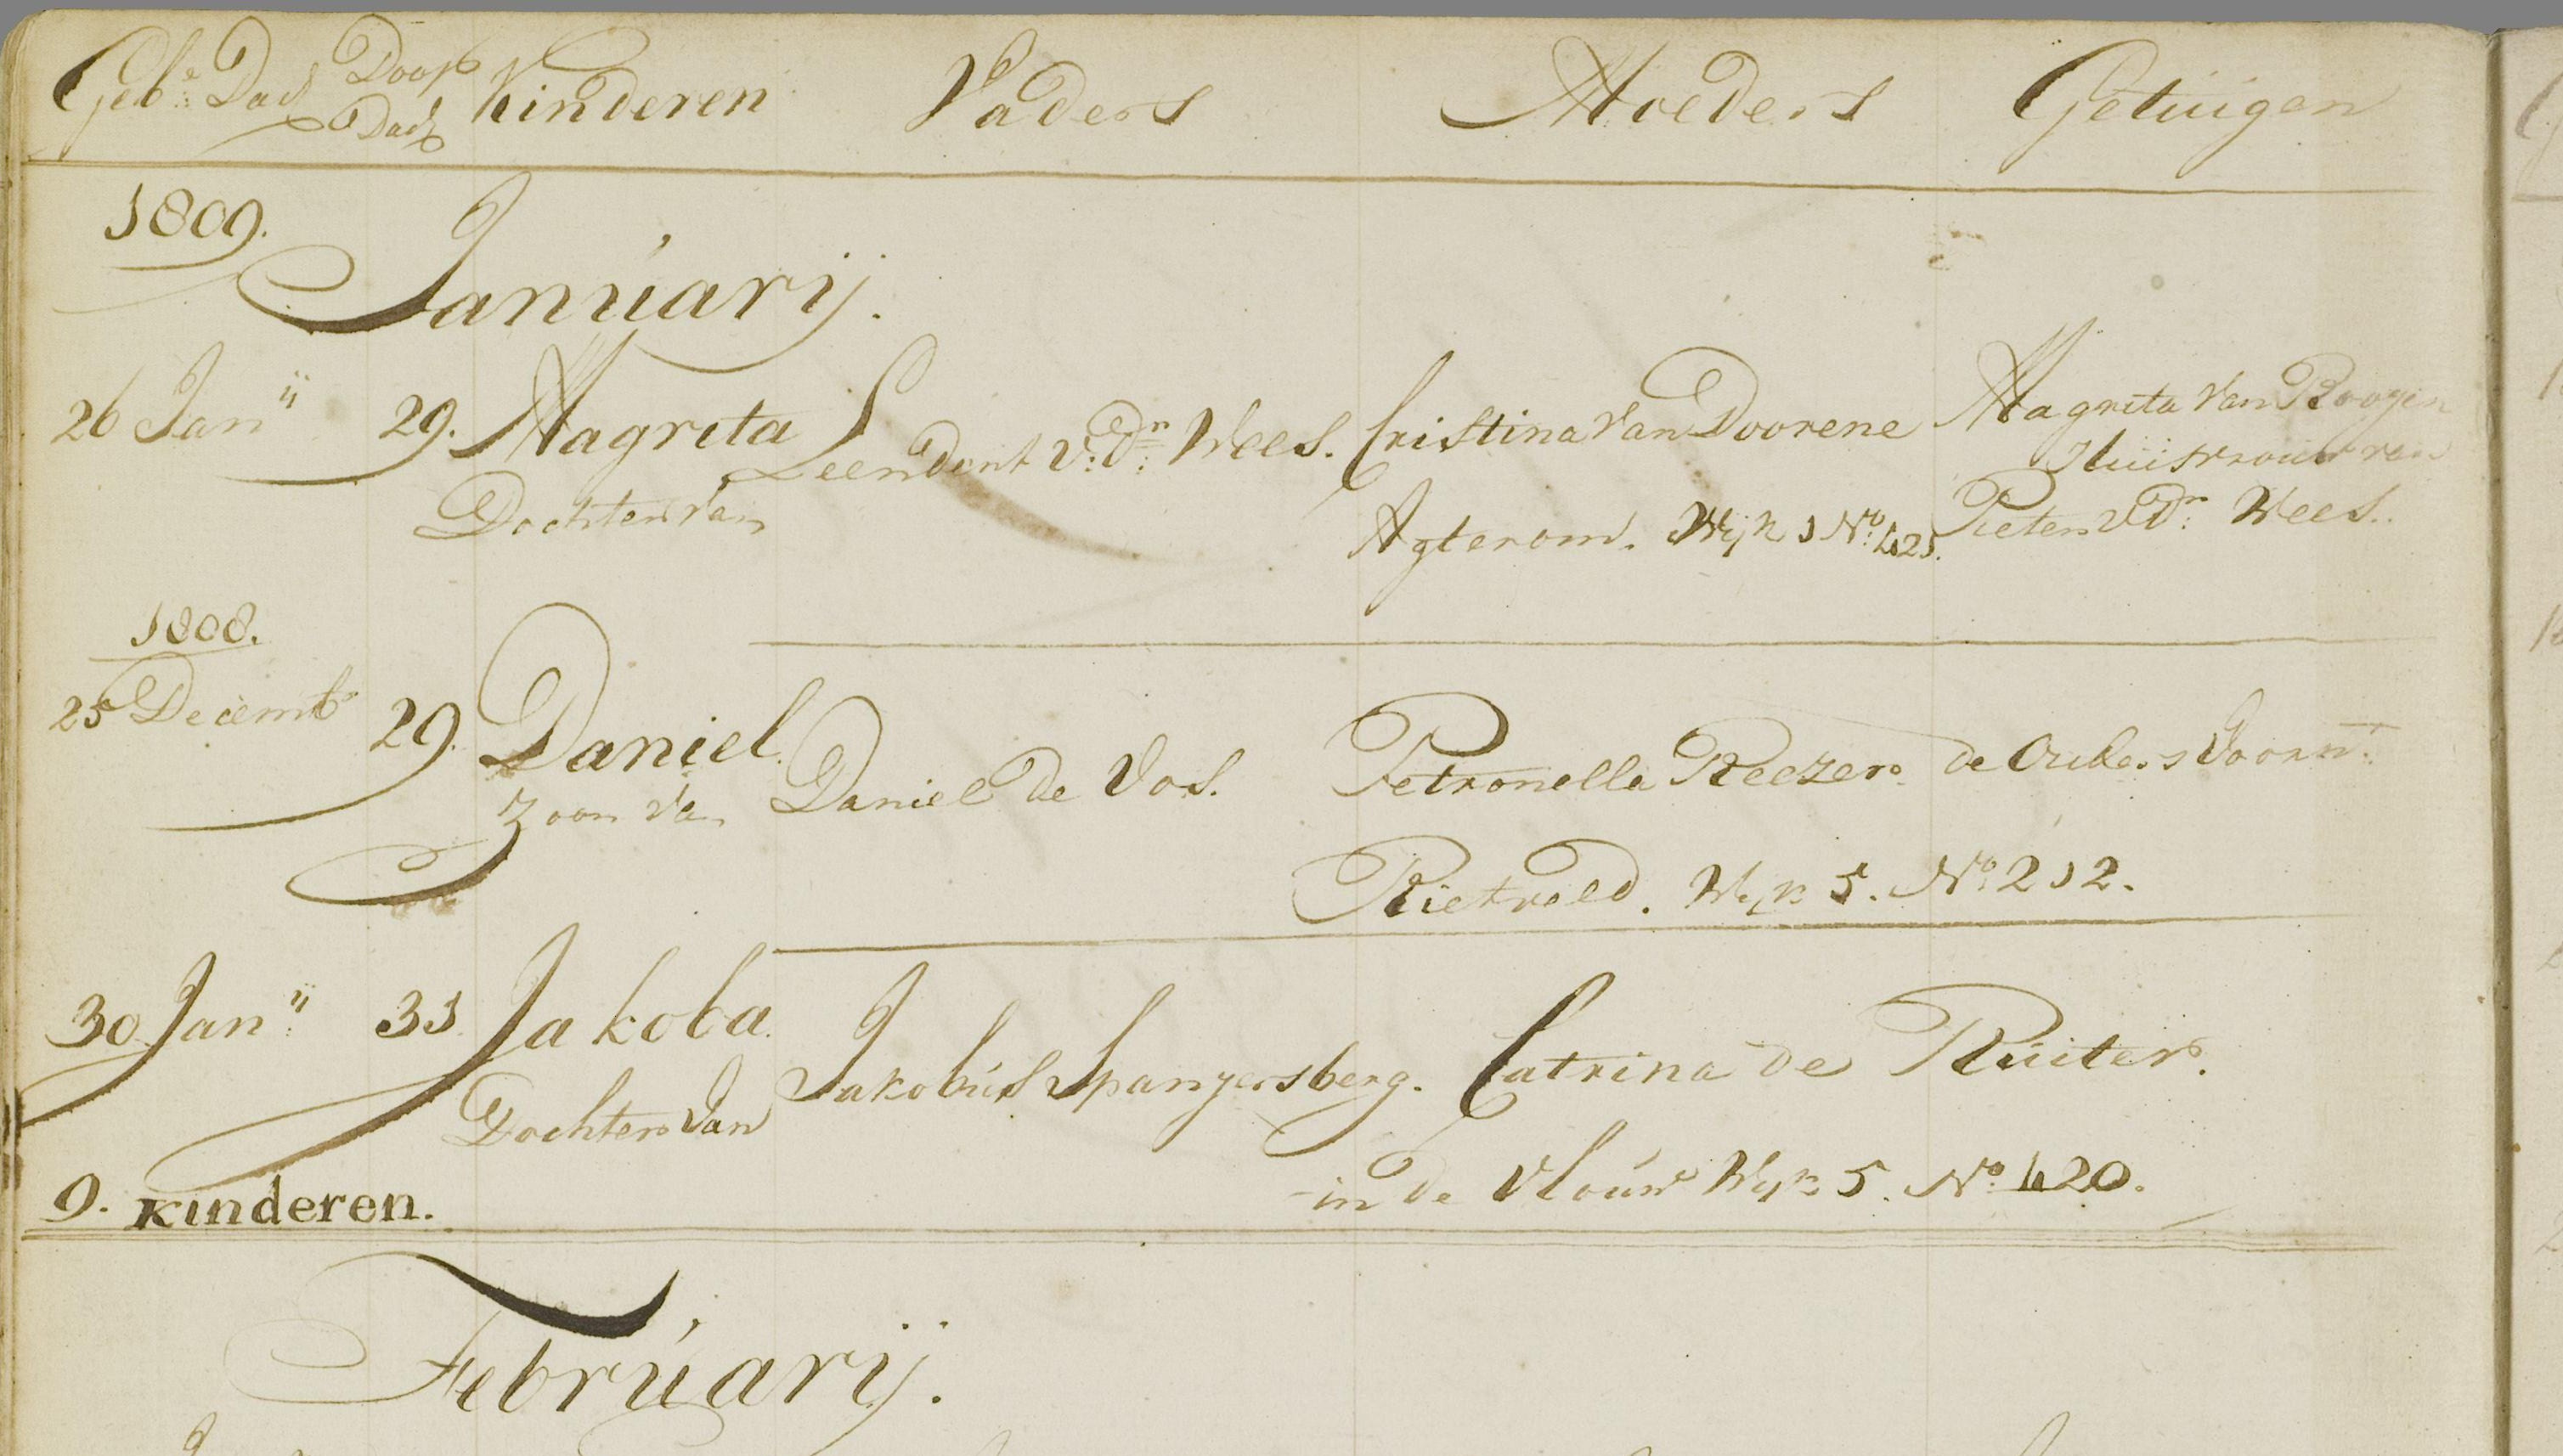 Geb:e Dag Doop Dag Kinderen Vaders Moeders Getuigen
1809.
Januarij.
26 Jan:ij 29. Magreta Leendert v:Dr: Wees. Cristina van Doorene Magreta van Rooyen
Dochter van Huisvrouw van
Agterom. Wijk 1 No: 425. Pieter v Dr: Wees.
1808.
25 Decemb 29. Daniel.
Zoon van Daniel de Vos. Petronella Keezer de Ouders Voorn:
Rietveld. Wijk 5. No: 212.
30 Jan:ij 31. Jakoba.
Dochter van Jakobus Spanjersberg. Catrina de Ruiter.
in de Vlouw Wijk 5. No: 420.
9. Kinderen.
Februarij.